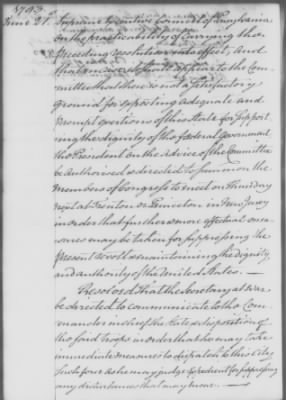 1783.
June 21st. Supreme Executive Council of Pennsylvania
on the practicability of carrying the
preceding resolution into effect, and
that in case it shall appear to the Com-
mittee that there is not a satisfactory
ground for expecting adequate and
prompt exertions of this State for support-
ing the dignity of the federal government
the President on the advice of the Committee
be authorised & directed to summon the
members of Congress to meet on Thursday
next at Trenton or Princeton in New Jersey
in order that further & more effectual mea-
sures may be taken for suppressing the
present revolt & maintaining the dignity
and authority of the United States. —
Resolved, That the Secretary at war
be directed to communicate to the Com-
mander in chief the state & disposition of
the said troops in order that he may take
immediate measures to dispatch to this City
such force as he may judge expedient for suppressing
any disturbances that may ensue. —